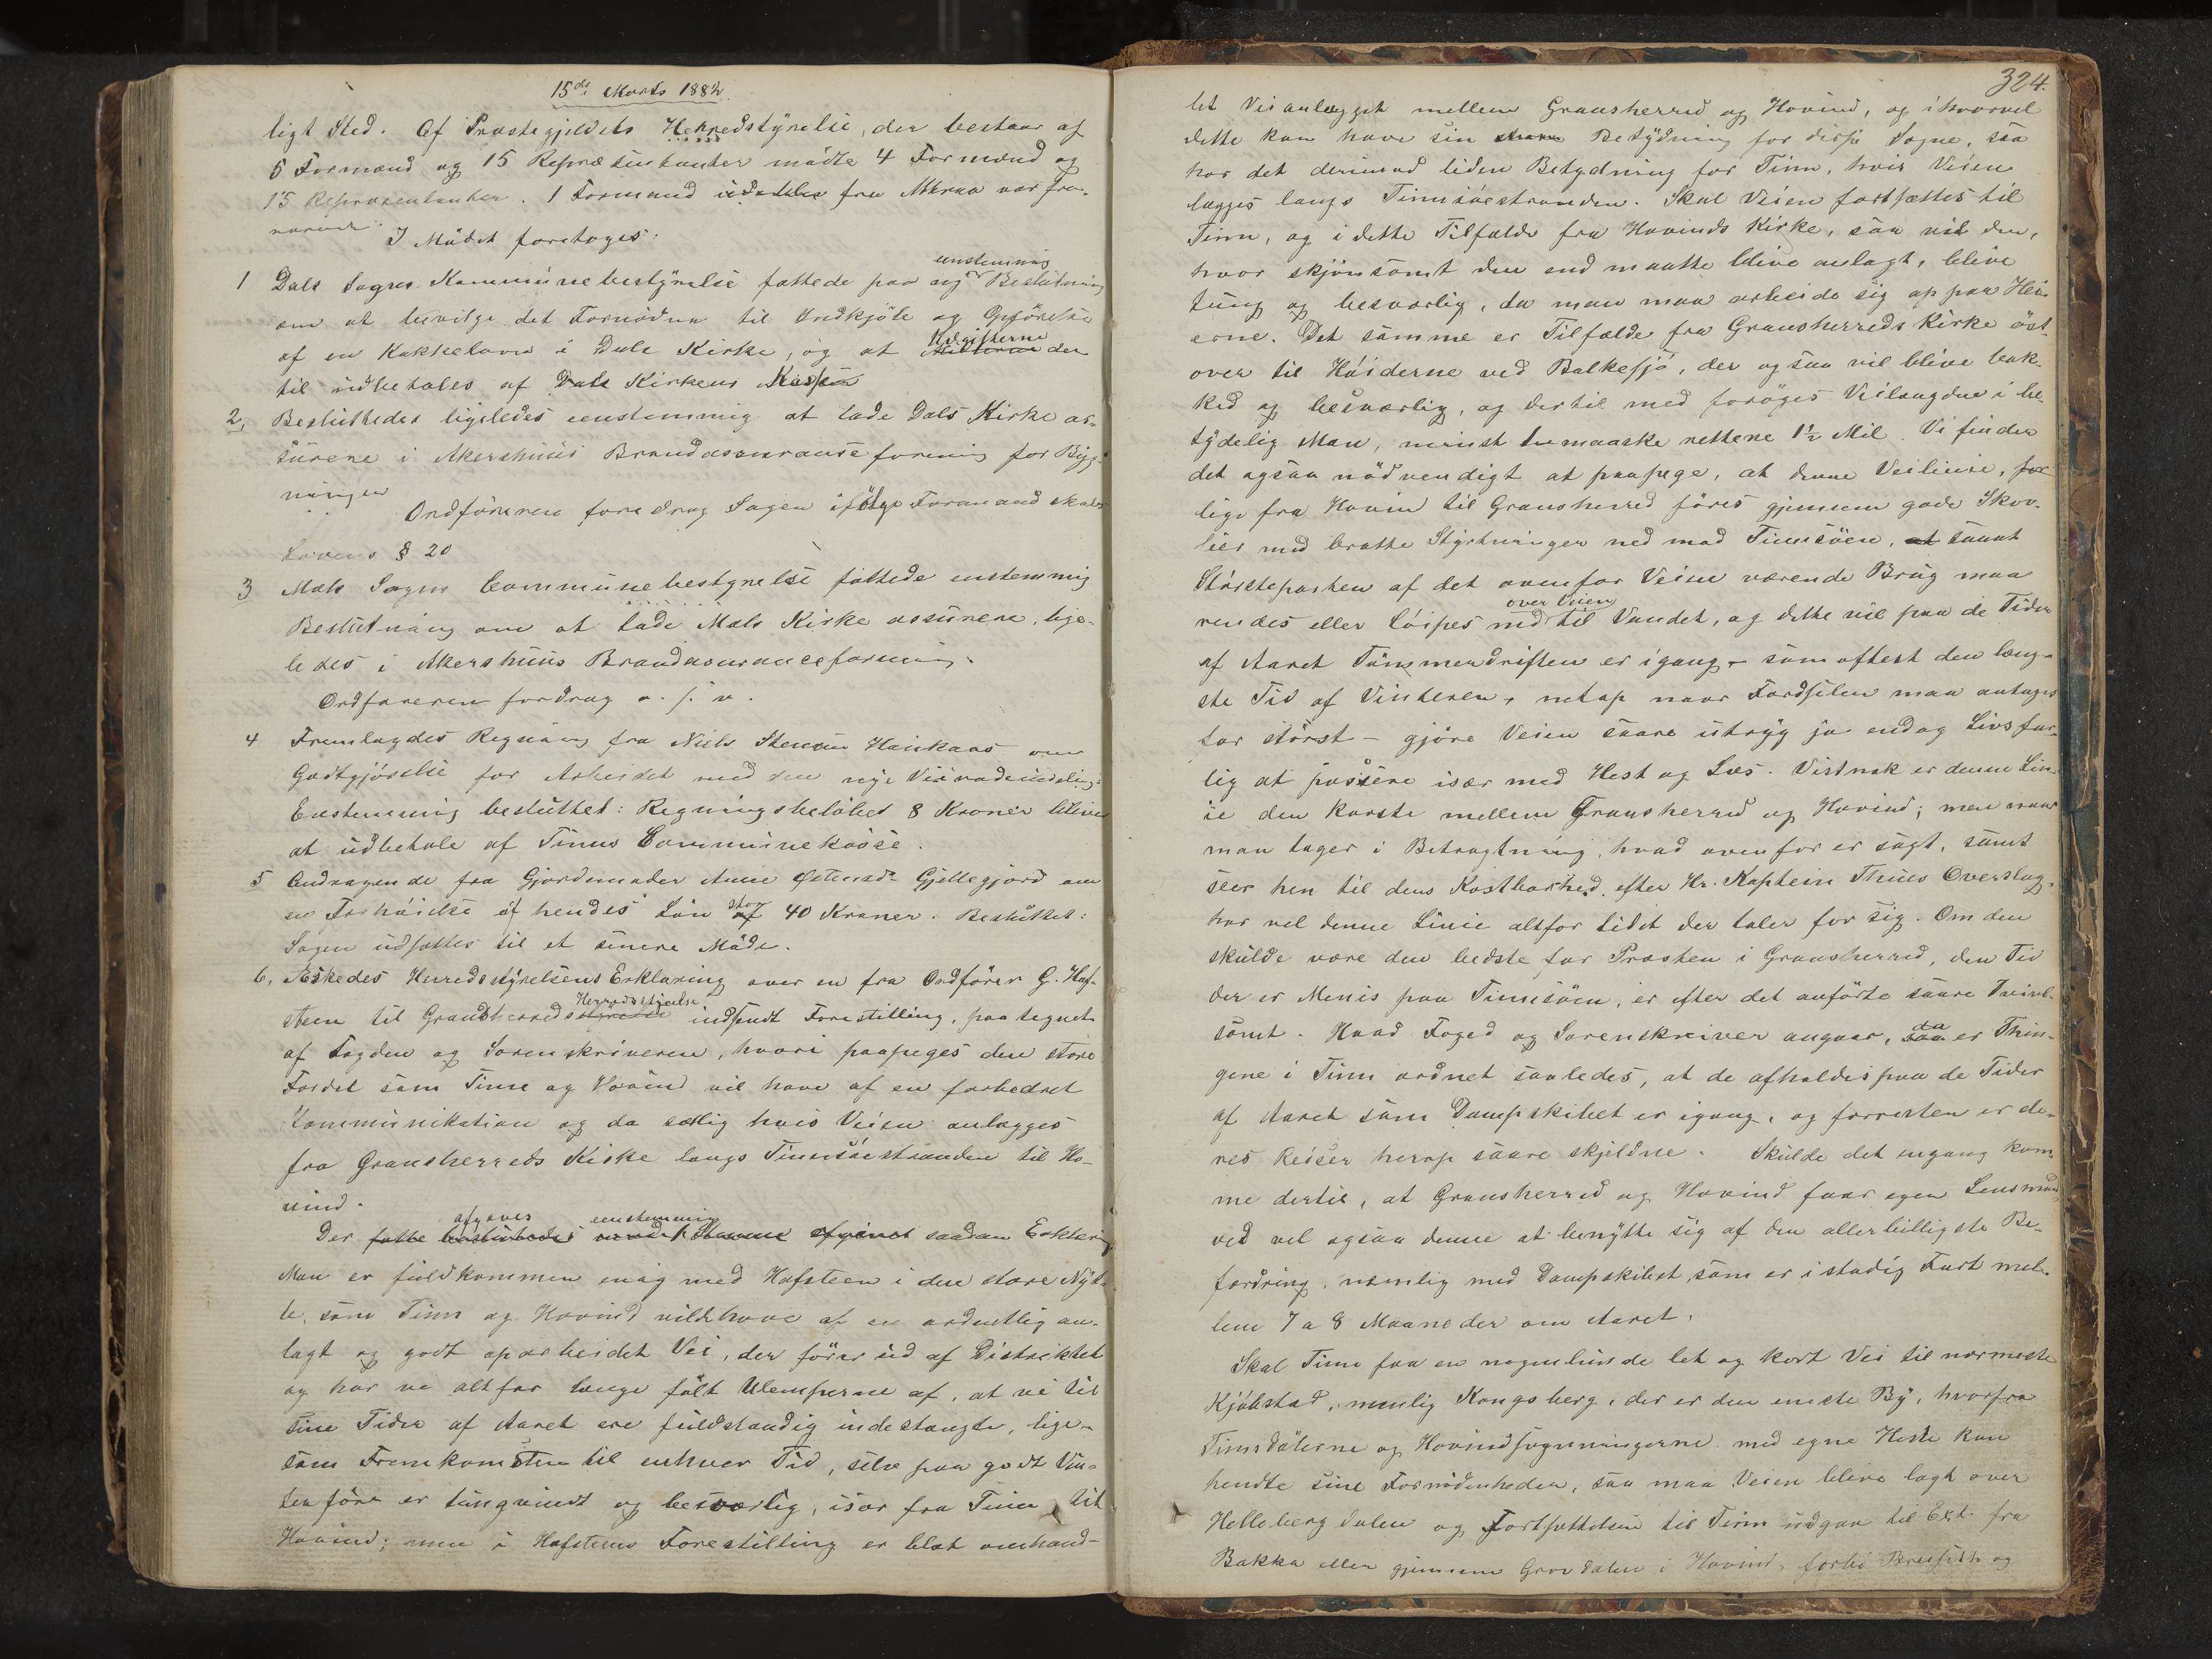 15de Marts 1882.
ligt Sted. Af Præstegjeldets Herredstyrelse, der bestaar af
5 Formænd og 15 Repræsentanter mødte 4 Formænd og
15 Repræsentanter. 1 Formand fra var fra-
værende.
I Mødet foretoges:
1 Dals Sogns Kommunebestyrelse fattede paa ny eenstemmig Beslutning
om at bevilge det Fornødne til Indkjøb og Opførelse
af en Kakkelovn i Dals Kirke, og at Udgifterne der
til udbetales af Dals Kirkens Kasse
2, Besluttedes ligeledes eenstemmig at lade Dals Kirke as-
surere i Akershuus Brandassuranceforening for Byg-
ninger
Ordføreren foredrog Sagen ifølge Formandskabs
Lovens § 20
3 Mæls Sogns Communebestyrelse fattede enstemmig
Beslutning om at lade Mæls Kirke assurere, lige-
ledes i Akershuus Brandassuranceforening.
Ordføreren fordrog o. s. v.
4 Fremlagdes Regning fra Niels Steensen Haukaas om
Godtgjørelse for Arbeidet med den nye Veirodeindeling:
Enstemmig besluttet: Regningsbeløbet 8 Kroner bliver
at udbetale af Tinns Communekasse.
5 Andragende fra Gjordemoder Anne Østensd. Gjellegjord om
en Forhøielse af hendes Løn stor 40 Kroner. Besluttet:
Sagen udsættes til et senere Møde.
6, Æskedes Herredsstyrelsens Erklæring over en fra Ordfører G. Haf-
steen til Gransherreds Herredsstyrelse indsendt Forestilling, paategnet
af Fogden og Sorenskriveren, hvori paapeges den store
Fordel som Tinn og Hovind vil have af en forbedret
Kommunikation og da særlig hvis Veien anlægges
fra Gransherreds Kirke langs Tinnsøestranden til Ho-
vind.
Der afgaves eenstemmig saadan Erklæring
Man er fuldkommen enig med Hafsteen i den store Nyt-
te, som Tinn og Hovind vilde have af en ordentlig an-
lagt og godt oparbeidet Vei, der fører ud af Distriktet
og har vi altfor længe følt Ulemperne af, at vi til
sine Tider af Aaret ere fuldstændig indestængte, lige-
som Fremkomsten til enhver Tid, selv paa godt Vin-
terføre er tungvindt og besværlig, især fra Tinn til
Hovind; men i Hafsteens Forestilling er blot omhand-
324.
let Veianlægget mellem Gransherred og Hovind, og ihvorvel
dette kan have sin store Betydning for disse Sogne, saa
har det derimod liden Betydning for Tinn, hvis Veien
lægges langs Tinnsøestranden. Skal Veien fortsættes til
Tinn, og i dette Tilfælde fra Hovinds Kirke, saa vil den,
hvor skjønsomt den end maatte blive anlagt, blive
tung og besværlig, da man maa arbeide sig op paa Hei-
erne. Det samme er Tilfælde fra Gransherreds Kirke øst-
over til Høiderne ved Bolkesjø, der ogsaa vil blive bak-
ked og besværlig, og dertil med forøges Veilængden i be-
tydelig Mon, mindst maaske rettere 1½ Mil. Vi finder
det ogsaa nødvendigt at paapege, at denne Veilinie, for
lige fra Hovin til Gransherred føres gjennem gode Skov-
lier med bratte Styrtninger ned mod Tinnsøen, samt
Størsteparten af det ovenfor Veien værende Brug maa
rendes eller løipes ned over Veien til Vandet, og dette vil paa de Tider
af Aaret Tømmerdriften er igang – som oftest den læng-
ste Tid af Vinteren, netop naar Færdselen maa antages
for størst – gjøre Veien saare utryg ja endog Livsfar-
lig at passere især med Hest og Læs. Vistnok er denne Lin-
ie den korste mellem Gransherred og Hovind; men naar
man tager i Betragtning, hvad ovenfor er sagt, samt
seer hen til dens Kostbarhed efter Hr. Kaptein Thues Overslag,
har vel denne Linie altfor lidet der taler for sig. Om den
skulde være den bedste for Præsten i Gransherred, den Tid
der er Menis paa Tinnsøen, er efter det anførte saare Tvivl-
somt. Hvad Foged og Sorenskriver angaar, da er Thin-
gene i Tinn ordnet saaledes, at de afholdes paa de Tider
af Aaret som Dampskibet er igang, og forresten er de-
res Reiser herop saare skjeldne. Skulde det engang kom-
me dertil, at Gransherred og Hovind faar egen Lensmand
ved vel ogsaa denne at benytte sig af den allerbilligste Be-
fordring, nemlig med Dampskibet, som er i stadig Fart mel-
lem 7 a 8 Maaneder om Aaret.
Skal Tinn faa en nogenlunde let og kort Vei til nærmeste
Kjøbstad, nemlig Kongsberg, der er den eneste By, hvorfra
Tinndølerne og Hovindsogningerne med egne Heste kan
hendte sine Fornødenheder, saa maa Veien blive lagt over
Helleberg dalen og Fortsættelsen til Tinn udgaa til Ext. fra
Bakka eller gjennem Grov dalen i Hovind, forbi og